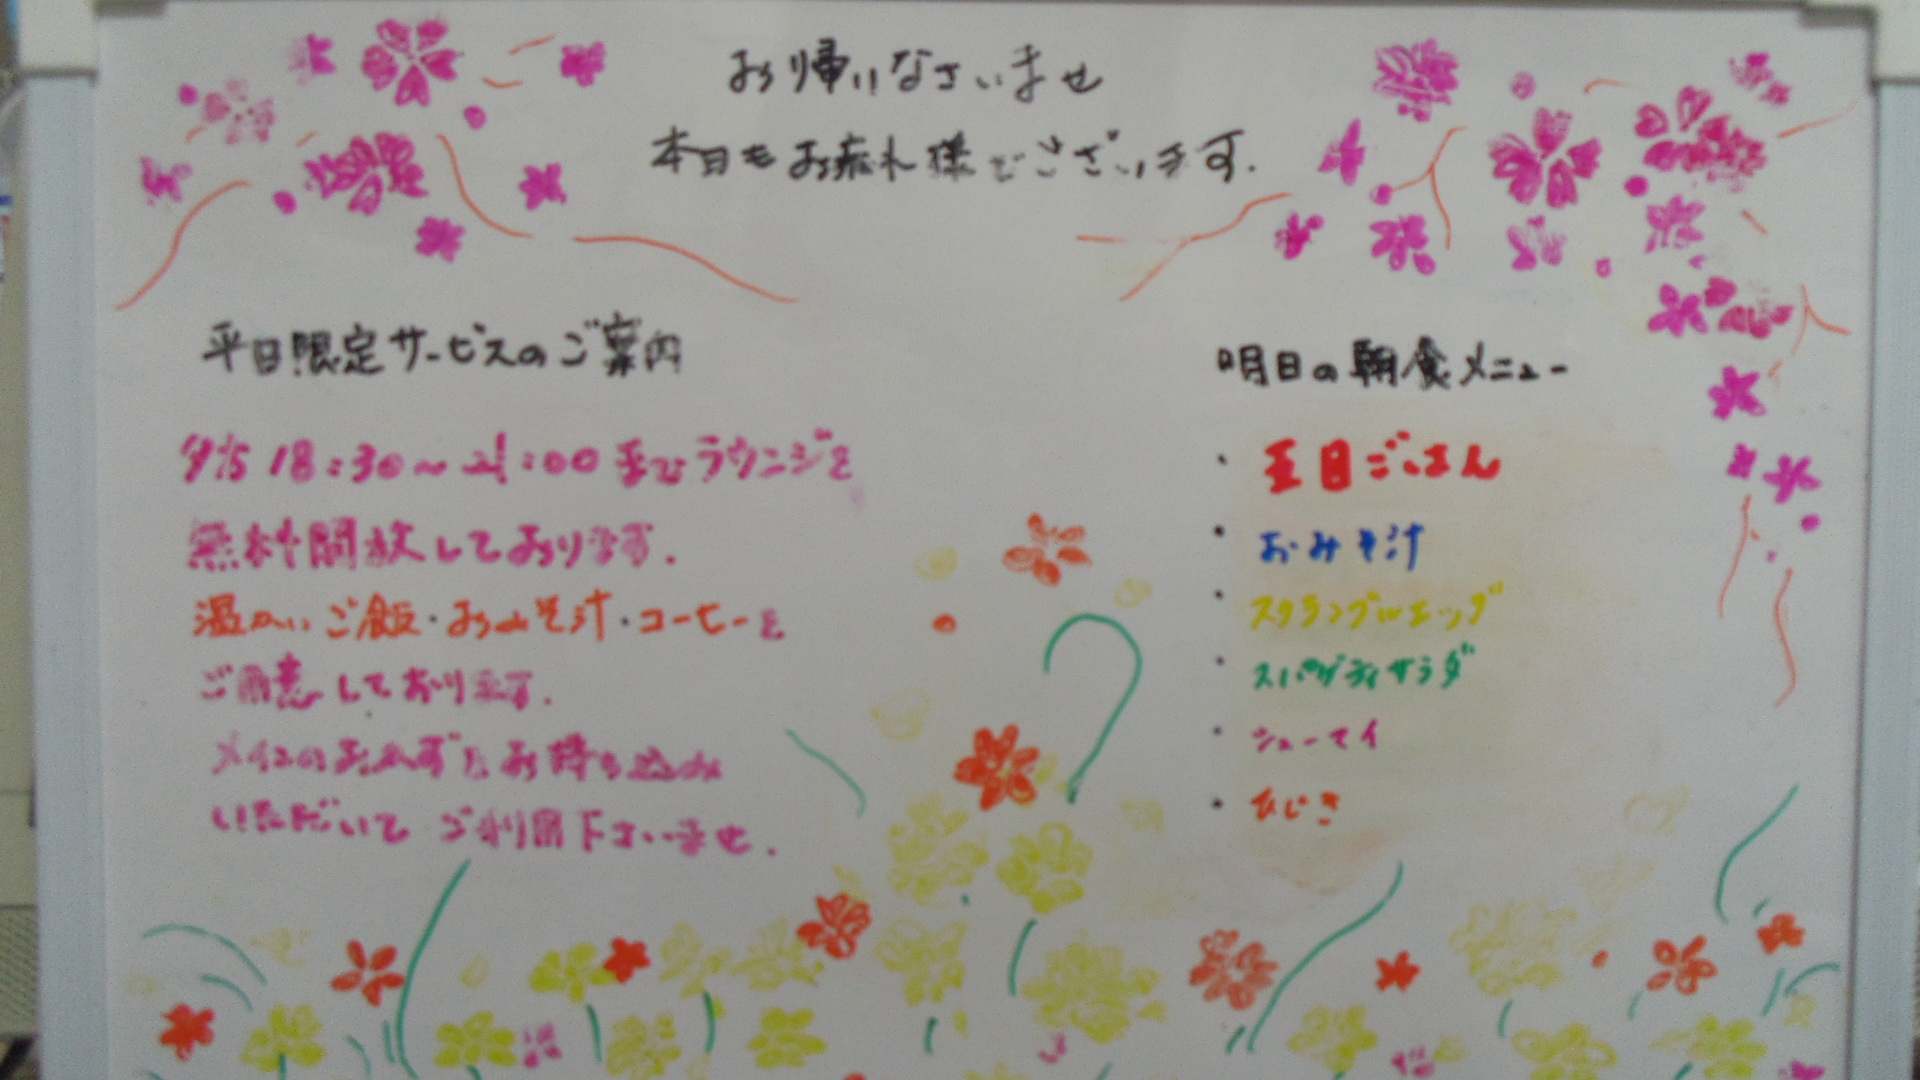 お帰りなさいませ
本日もお疲れ様でございます.
平日限定サービスのご案内
夕方 18:30～21:00までラウンジを
無料開放しております.
温かいご飯・おみそ汁・コーヒーを
ご用意しております.
メインのおかずはお持ち込み
いただいて ご利用下さいませ.
明日の朝食メニュー
・ 五目ごはん
・ おみそ汁
・ スクランブルエッグ
・ スパゲティサラダ
・ シューマイ
・ ひじき